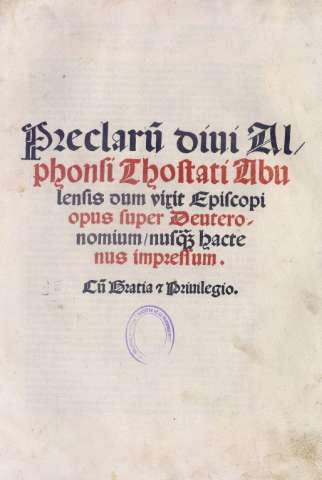 Preclarũ diui Al/
phonsi Thostati Abu
lensis dum vixit Episcopi
opus super Deutero-
nomium/nusq̃ȝ hacte
nus impressum.
Cũ Gratia ⁊ Priuilegio.